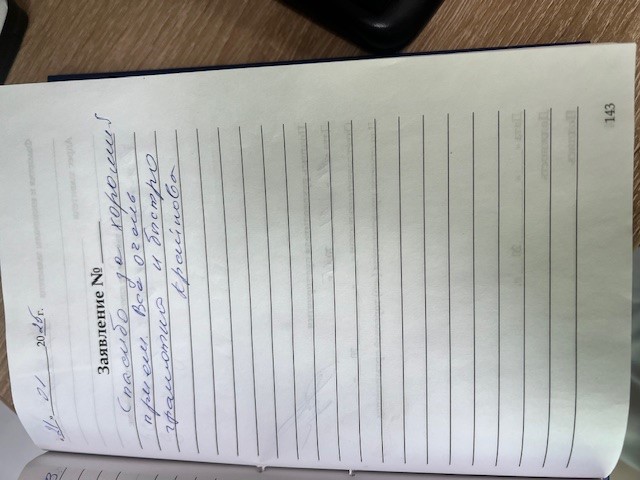 01 2025 г.
Заявление № ____
Спасибо за хороший
прием. Всё очень
грамотно и быстро
Крайнова
143